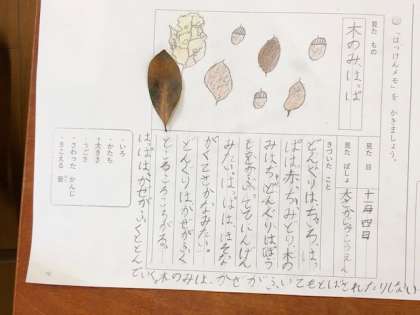 「はっけんメモ」を かきましょう。
見た もの
木のみ、はっぱ
見た 日
十一月四日
見た ばしょ
きづいた こと
どんぐりは、ちゃいろ、はっ
ぱは、赤、ちゃ、みどり、木の
みは、ちゃ、どんぐりは、ぼう
しをかぶってて、にんげん
みたい。はっぱはほそな
がくてさかなみたい。
どんぐりはかぜがふく
ところころころがる
はっぱはかぜがふくととん
でいく。木のみは、かぜがふいてもとばされたりしない
・いろ
・かたち
・大きさ
・うごき
・さわった かんじ
・きこえる 音